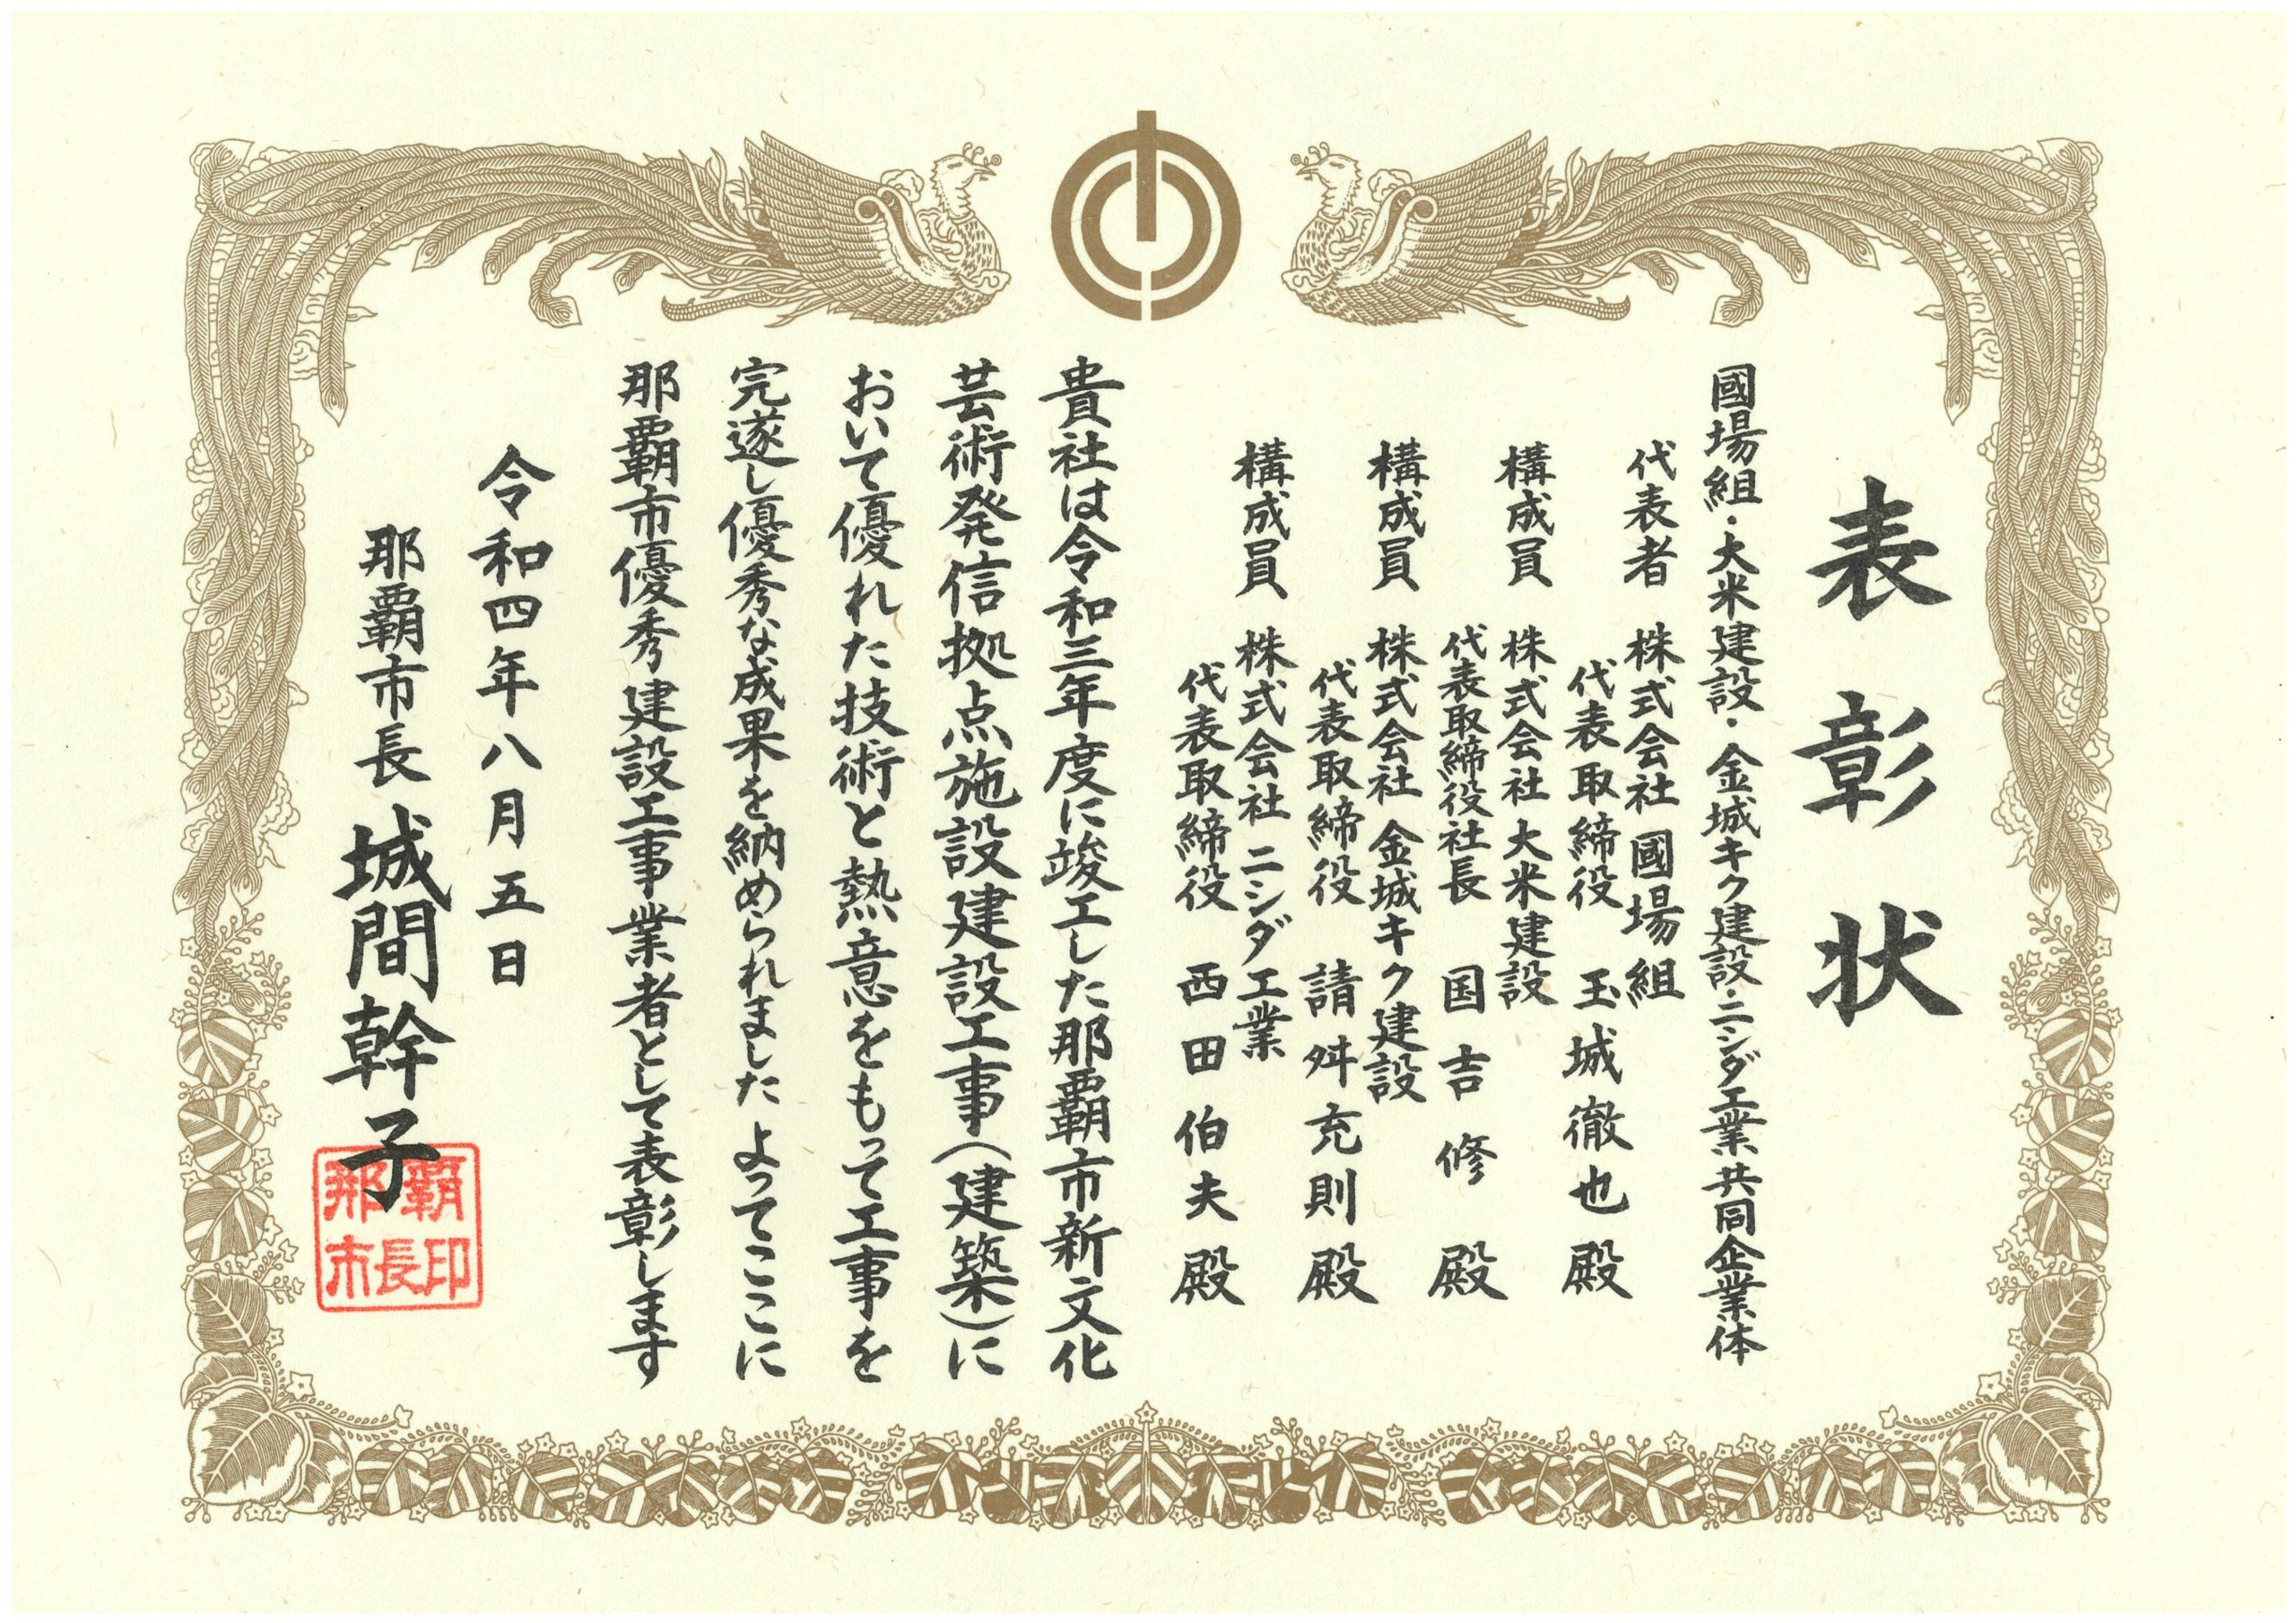 表彰状
國場組・大米建設・金城キク建設・ニシダ工業共同企業体
代表者 株式会社 國場組
代表取締役 玉城徹也 殿
構成員 株式会社 大米建設
代表取締役社長 国吉修 殿
構成員 株式会社 金城キク建設
代表取締役 請舛充則 殿
構成員 株式会社 ニシダ工業
代表取締役 西田伯夫 殿
貴社は令和三年度に竣工した那覇市新文化
芸術発信拠点施設建設工事(建築)に
おいて優れた技術と熱意をもって工事を
完遂し優秀な成果を納められました よってここに
那覇市優秀建設工事業者として表彰します
令和四年八月五日
那覇市長 城間幹子
那覇
市長印